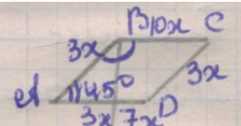 B 10x C
3x
3x
A 45°
D
3x 7x